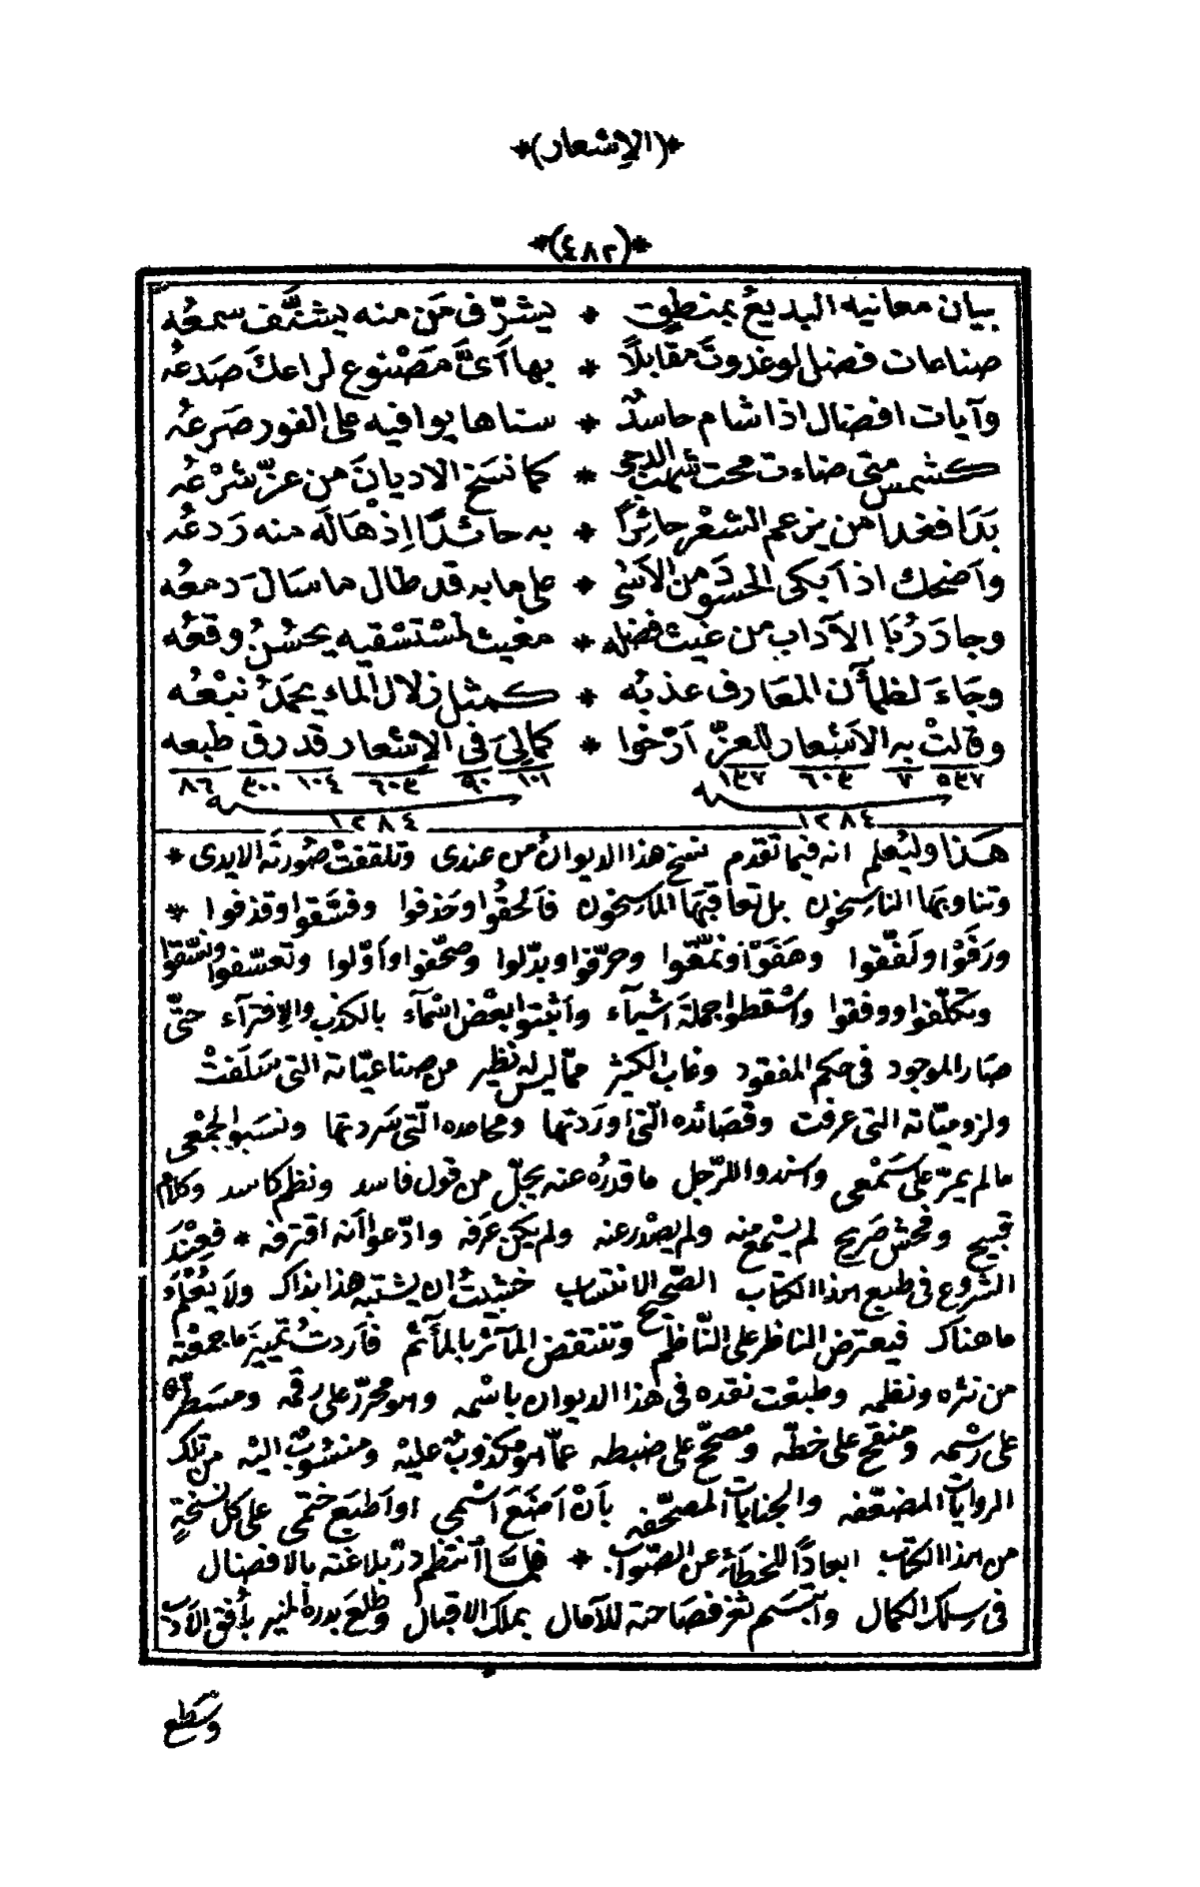 *(الإشعار)*
*(٤٨٢)*
بيان معانيه البديعُ بمنطقٍ * يشرّف مَن منه يشنَّف سمعُه
صناعات فضل لو غدوتَ مقابلًا * بها آىَّ مَصْنوع لراعكَ صَدعُه
وآيات افضال اذا شام حاسدٌ * سناها يوافيه على الفور صَرعُه
كشمس متى ضاءت محت ظلمت الدجى * كما نسَخ الاديانَ من عزّ شرْعُه
بَدَا فغدا من يزعم الشعْر حائِرًا * به حاشدًا إذْ هَالَه منه رَدعُه
وآضحك اذ آبكى الحسودَ من الآسَى * على ما به قد طال ما سَالَ دمعُه
وجادَ رُبَا الآداب من غيث فضله * مغيث لمسْتسْقيه يحسُنُ وقعُه
وجَاءَ لظمآن المعَارف عذبُه * كمثل زلال الماء يحمَدُ نبْعُه
وقالتْ به الآشعار للعزّ آرّخوا * كمالِىَ فى الإشعار قد رق طبعه
٥٣٧ ٧ ٦٠٣ ١٣٧ ١٠١ ٩٠ ٦٠٣ ١٠٤ ٣٠٠ ٨٦
١٢٨٤ ١٢٨٤
هَذا وليُعلم انه فيما تقدم نسخ هذا الديوانُ من عندى وتلقفتْ صُورتَه الايدى *
وتناوبها الناسخون بل تعاقبَها الماسخون فآلحقُوا وحَذفوا وفسَّقوا وقذفوا *
ورَقَّوْا ولَفّقوا وهَفَوْا ونمَّقوا وحرّفوا وبدّلوا وصحّفوا وآوّلوا وتعسّفوا ونسَّقوا
وتكلّفوا ووفقوا وآسْقطوا جملة آشيآء وآثبتوا بعْض اسْمآء بالكذب والإفترآء حتّى
صَار الموجود فى حكم المفقود وغاب الكثير ممّا ليس له نظير من صناعيّاته التى سَلَفتْ
ولزوميّاته التى عرفت وقصَائده الّتى آورَدتها ومحامده الّتى سَردتها ونسَبوا لجمْعى
مالم يمرّ على سَمْعى وآسندوا للرّجل ما قدرُه عنه يجلّ من قول فاسد ونظم كاسد وكلام
قبيح وفحش صَريح لم يسْمع منه ولم يصْدر عنه ولم يكن عَرَفه وادّعوا آنه اقترفه * فعِنْدَ
الشروع فى طبع هذا الكتاب الصّحيح الانتساب خشيتُ ان يشتبه هذا بذاك ولا يُعْلَم
ما هناك فيعترض الناظر على النّاظم وتنتقض المآثر بالمآثم فآردتُ تمييزَ ما جمعْته
من نثره ونظمه وطبعْت نقده فى هذا الديوان باسْمه وهو محرّر على رقمه ومسَطّر
على رسْمه ومنقح على خطّه ومصحّح على ضبطه عمّا هو مكذوبٌ عليْه ومنسُوبٌ اليْه من تلك
الروايات المضعّفه والجنايات المصحّفه بآنْ آصنَعَ آسْمى او آطبَع ختمى على كل نسخةٍ
من هذا الكتاب ابعادًا للخطآء عن الصّوَاب * فلمَّا انتظم درّ بلاغته بالافضال
فى سلك الكمال وابتَسَم ثغر فصَاحته للآمال بملك الاقبال وطلعَ بدره المنير بآفق الآدَب
وسَطع